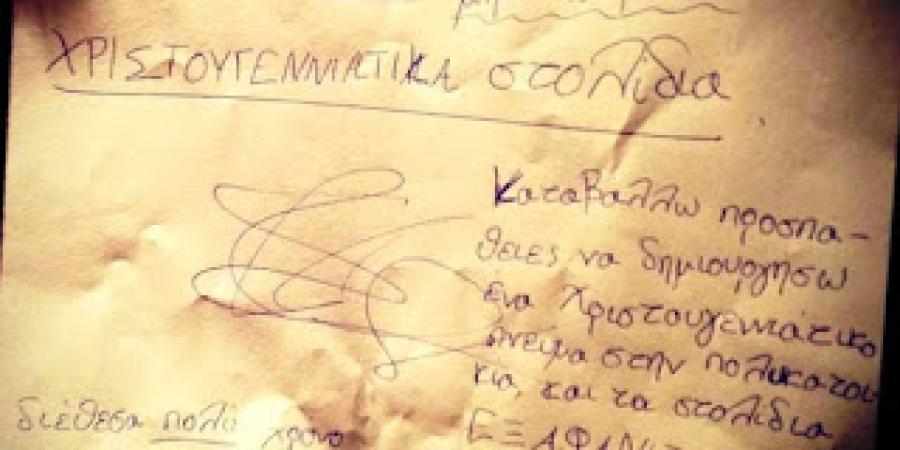 ΧΡΙΣΤΟΥΓΕΝΝΙΑΤΙΚΑ στολίδια
Καταβαλλω προσπα-
θειες να δημιουργήσω
ένα Χριστουγεννιάτικο
πνεύμα στην πολυκατοι
κια, και τα στολίδια
διέθεσα πολύ χρόνο